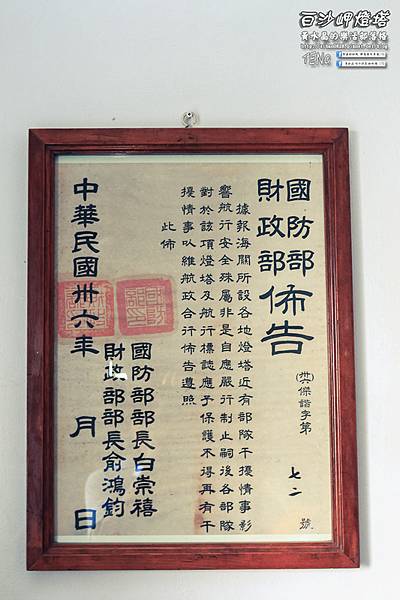 白沙岬燈塔
黃水晶的樂活部落格
YENC
國防部
財政部
佈告
(卅六)傑諮字第 七二 號
據報海關所設各地燈塔近有部隊干擾情事影
響航行安全殊屬非是自應嚴行制止嗣後各部隊
對於該項燈塔及航行標誌應予保護不得再有干
擾情事以維航政合行佈告遵照
此佈
國防部部長白崇禧
財政部部長俞鴻鈞
中華民國卅六年 月 日